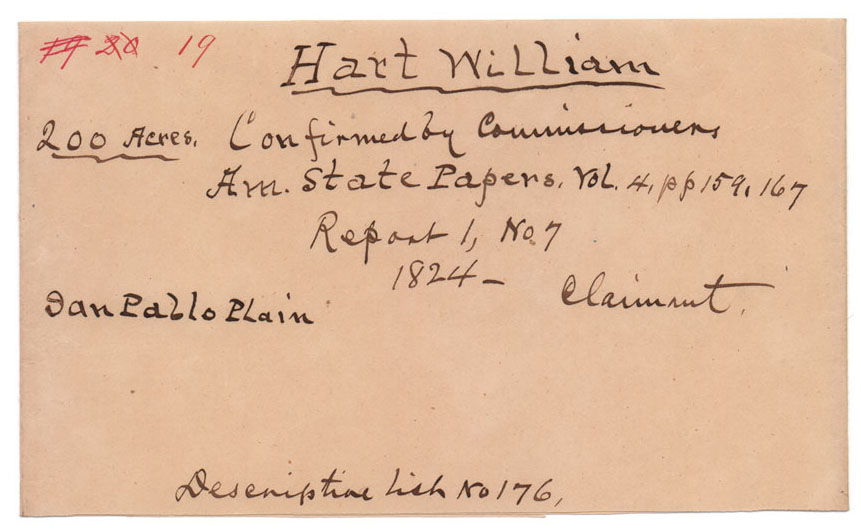 19 20 19
Hart William
200 Acres. Confirmed by Commissioners
Am. State Papers. Vol. 4, pp 159, 167
Report 1, No. 7
1824 –
Claimant.
San Pablo Plain
Descriptive List No 176,